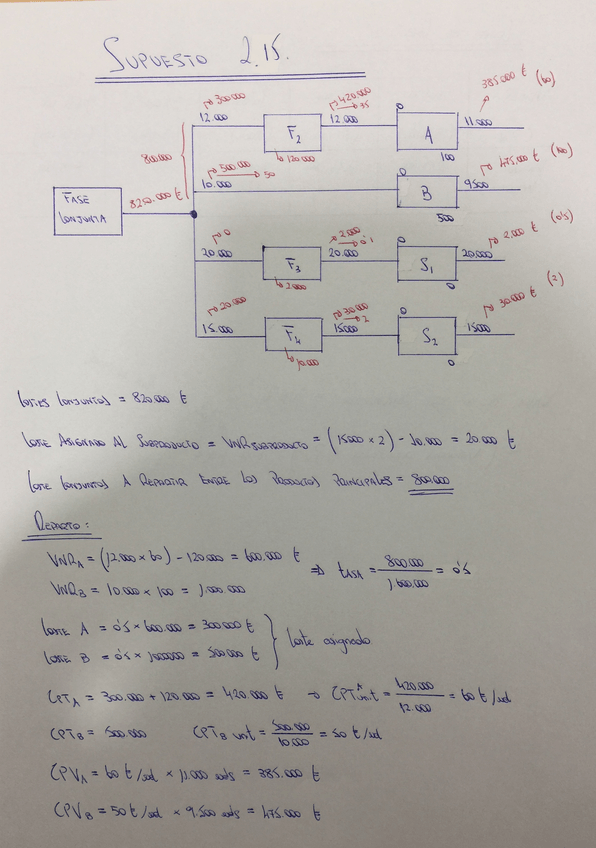 SUPUESTO 2.15.
385.000 € (60)
300.000
420.000
35
12.000
12.000
0
11.000
800.000
F2
A
120.000
100
500.000
50
475.000 € (100)
10.000
9500
FASE CONJUNTA
8250.000 €
B
500
0
2.000
0'1
0
2.000 € (0'5)
20.000
20.000
20.000
F3
S1
2.000
0
20.000
30.000
2
0
30.000 € (2)
15.000
15000
15000
F4
S2
10.000
0
COSTES CONJUNTOS = 820.000 €
COSTE ASIGNADO AL SUBPRODUCTO = VNR SUBPRODUCTO = (15000 x 2) - 10.000 = 20.000 €
COSTE CONJUNTOS A REPARTIR ENTRE LOS PRODUCTOS PRINCIPALES = 800.000
REPARTO:
VNRA = (12.000 x 60) - 120.000 = 600.000 €
VNRB = 10.000 x 100 = 1.000.000
⇒ tASA = 800.000 / 1.600.000 = 0'5
COSTE A = 0'5 x 600.000 = 300.000 €
COSTE B = 0'5 x 1000000 = 500.000 €
} Coste asignado
CPTA = 300.000 + 120.000 = 420.000 € → CPTA unit = 420.000 / 12.000 = 60 €/ud
CPTB = 500.000 CPTB unit = 500.000 / 10.000 = 50 €/ud
CPVA = 60 €/ud x 11.000 uds = 385.000 €
CPVB = 50 €/ud x 9.500 uds = 475.000 €